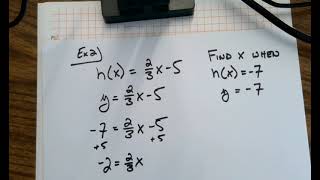 Ex 2)
h(x) = 2/3 x - 5
y = 2/3 x - 5
-7 = 2/3 x - 5
+5 +5
-2 = 2/3 x
FIND X WHEN
h(x) = -7
y = -7